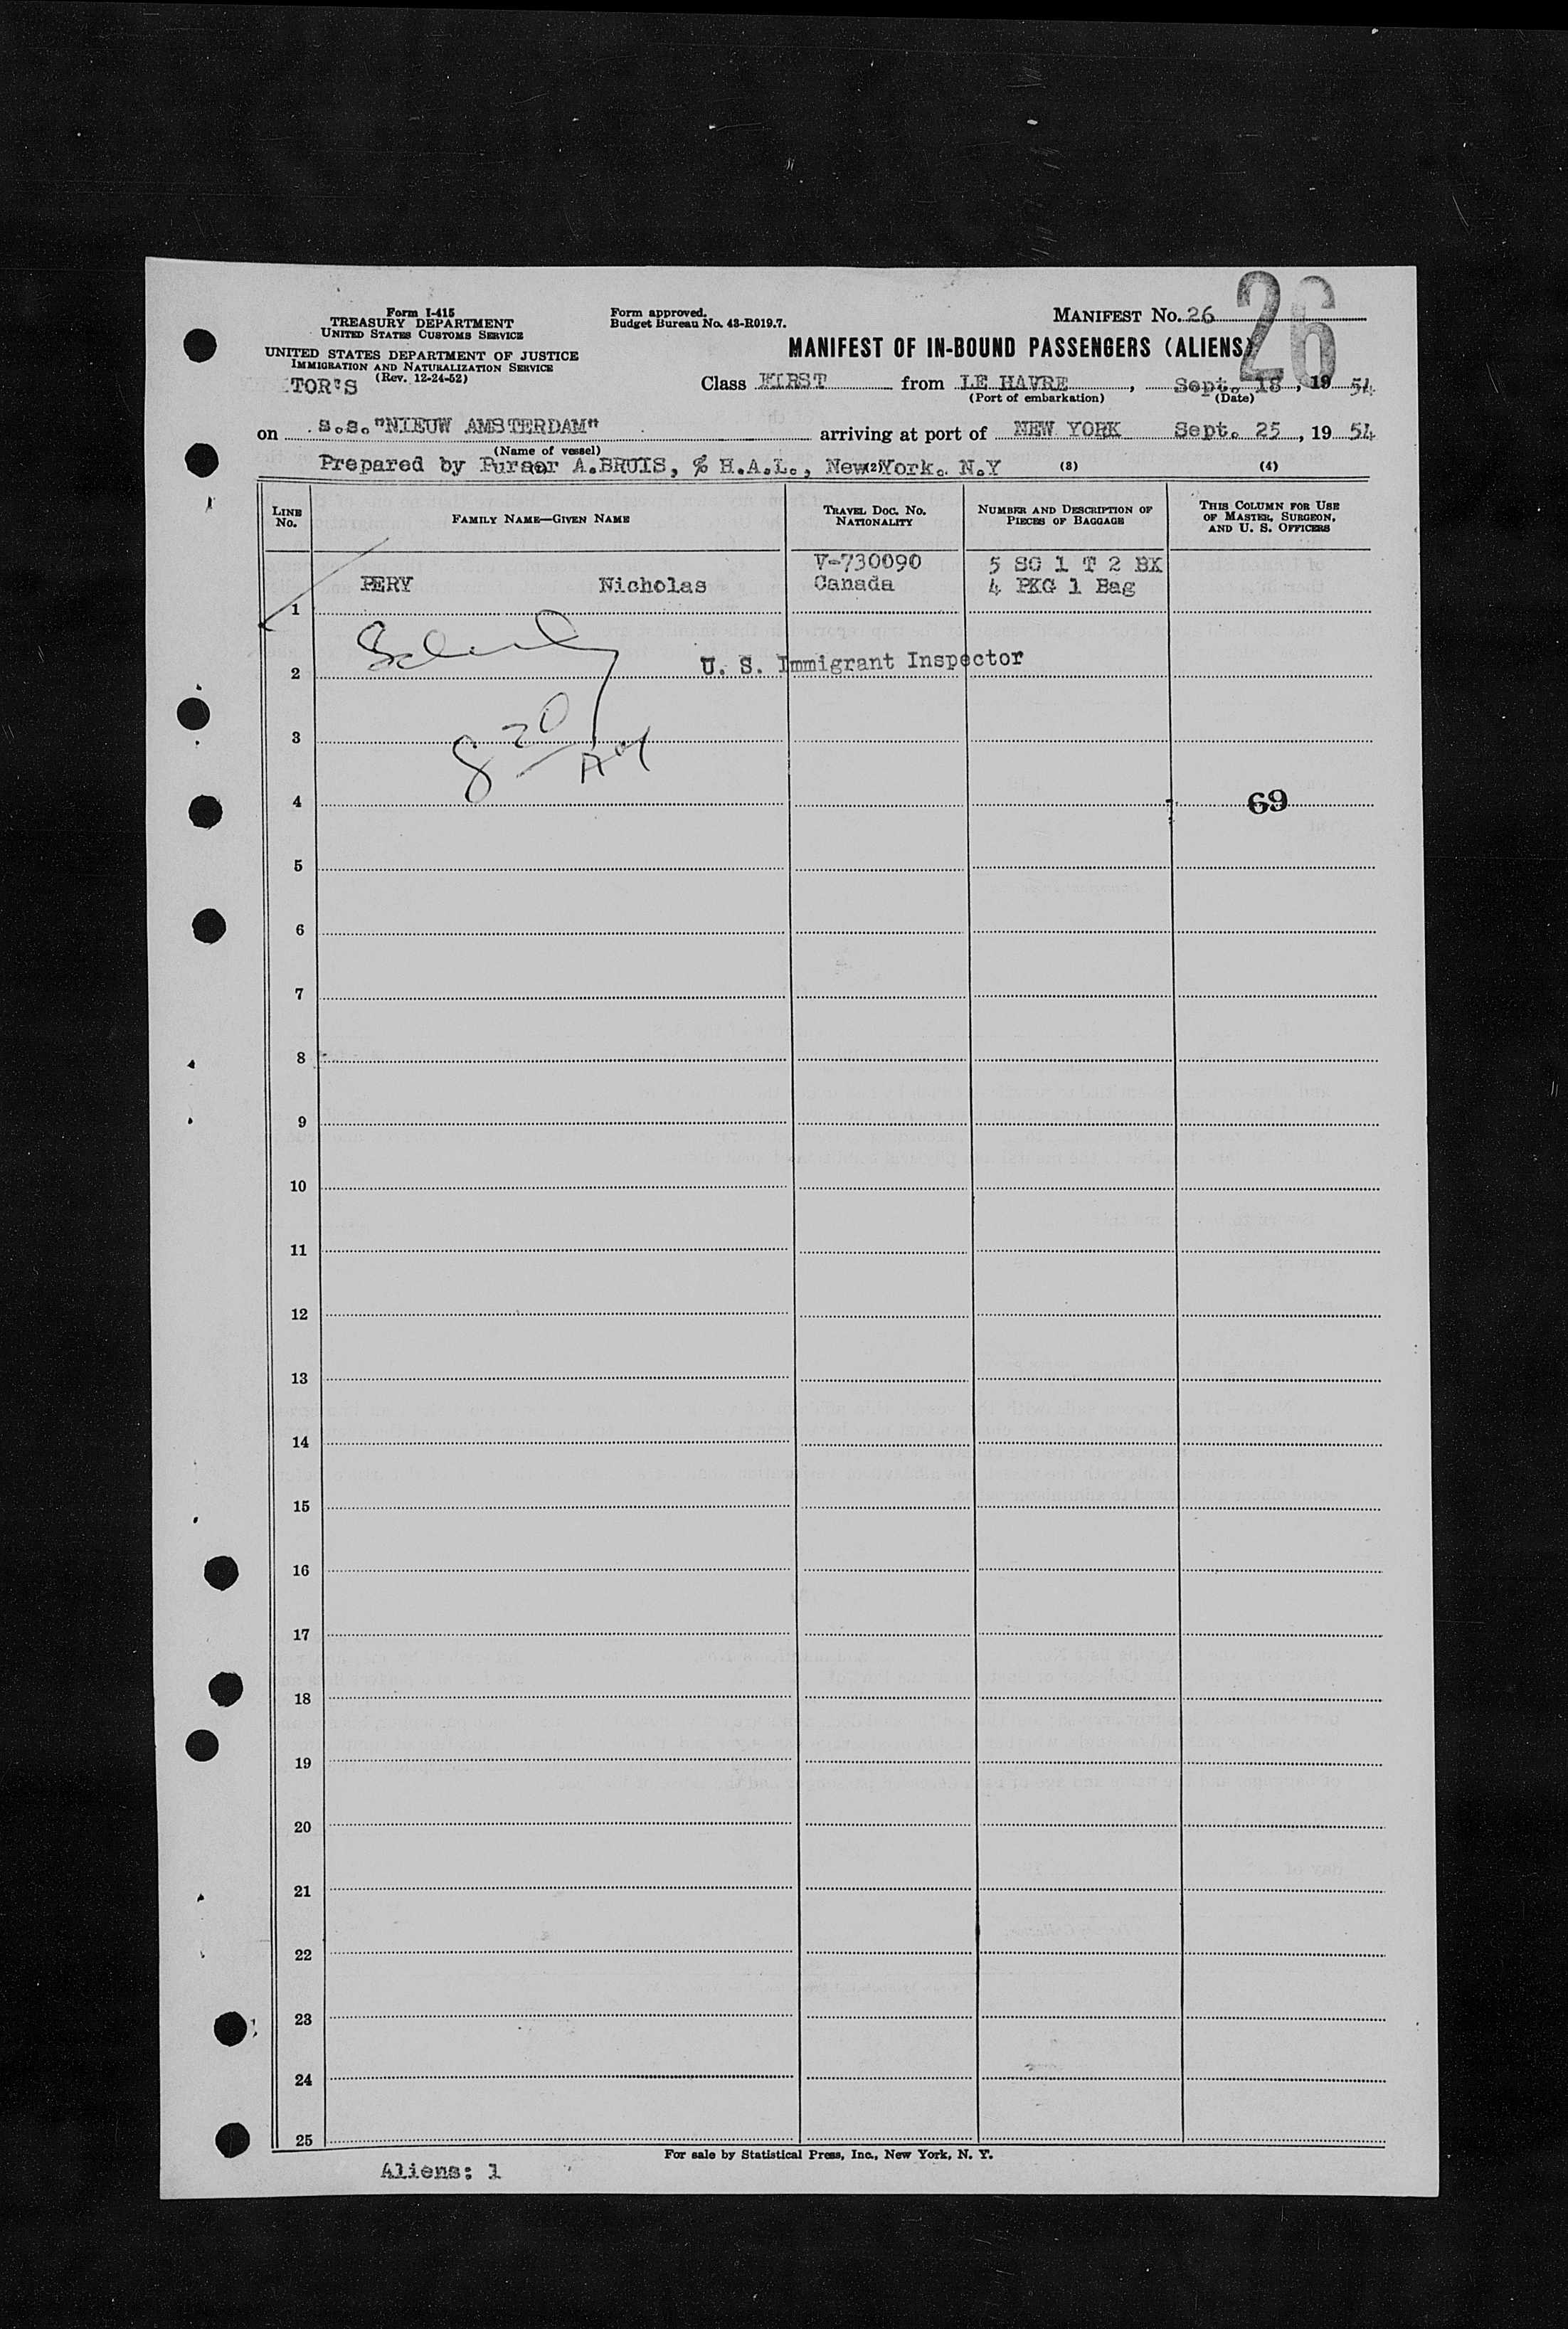 Form I-415
TREASURY DEPARTMENT
UNITED STATES CUSTOMS SERVICE
UNITED STATES DEPARTMENT OF JUSTICE
IMMIGRATION AND NATURALIZATION SERVICE
(Rev. 12-24-52)
TOR'S
Form approved.
Budget Bureau No. 43-R019.7.
MANIFEST No. 26
26
MANIFEST OF IN-BOUND PASSENGERS (ALIENS)
Class FIRST from LE HAVRE, Sept. 18, 1954
(Port of embarkation) (Date)
on s.s. "NIEUW AMSTERDAM" arriving at port of NEW YORK Sept. 25, 1954
(Name of vessel)
Prepared by Purser A.BRUIS, % H.A.L., New York. N.Y
(2) (3) (4)
LINE No.
FAMILY NAME—GIVEN NAME
TRAVEL DOC. NO. NATIONALITY
NUMBER AND DESCRIPTION OF PIECES OF BAGGAGE
THIS COLUMN FOR USE OF MASTER, SURGEON, AND U. S. OFFICERS
V-730090 5 SC 1 T 2 BX
PERY Nicholas Canada 4 PKG 1 Bag
1
U. S. Immigrant Inspector
2
8 20 AM
3
4 69
5
6
7
8
9
10
11
12
13
14
15
16
17
18
19
20
21
22
23
24
25
For sale by Statistical Press, Inc., New York, N. Y.
Aliens: 1